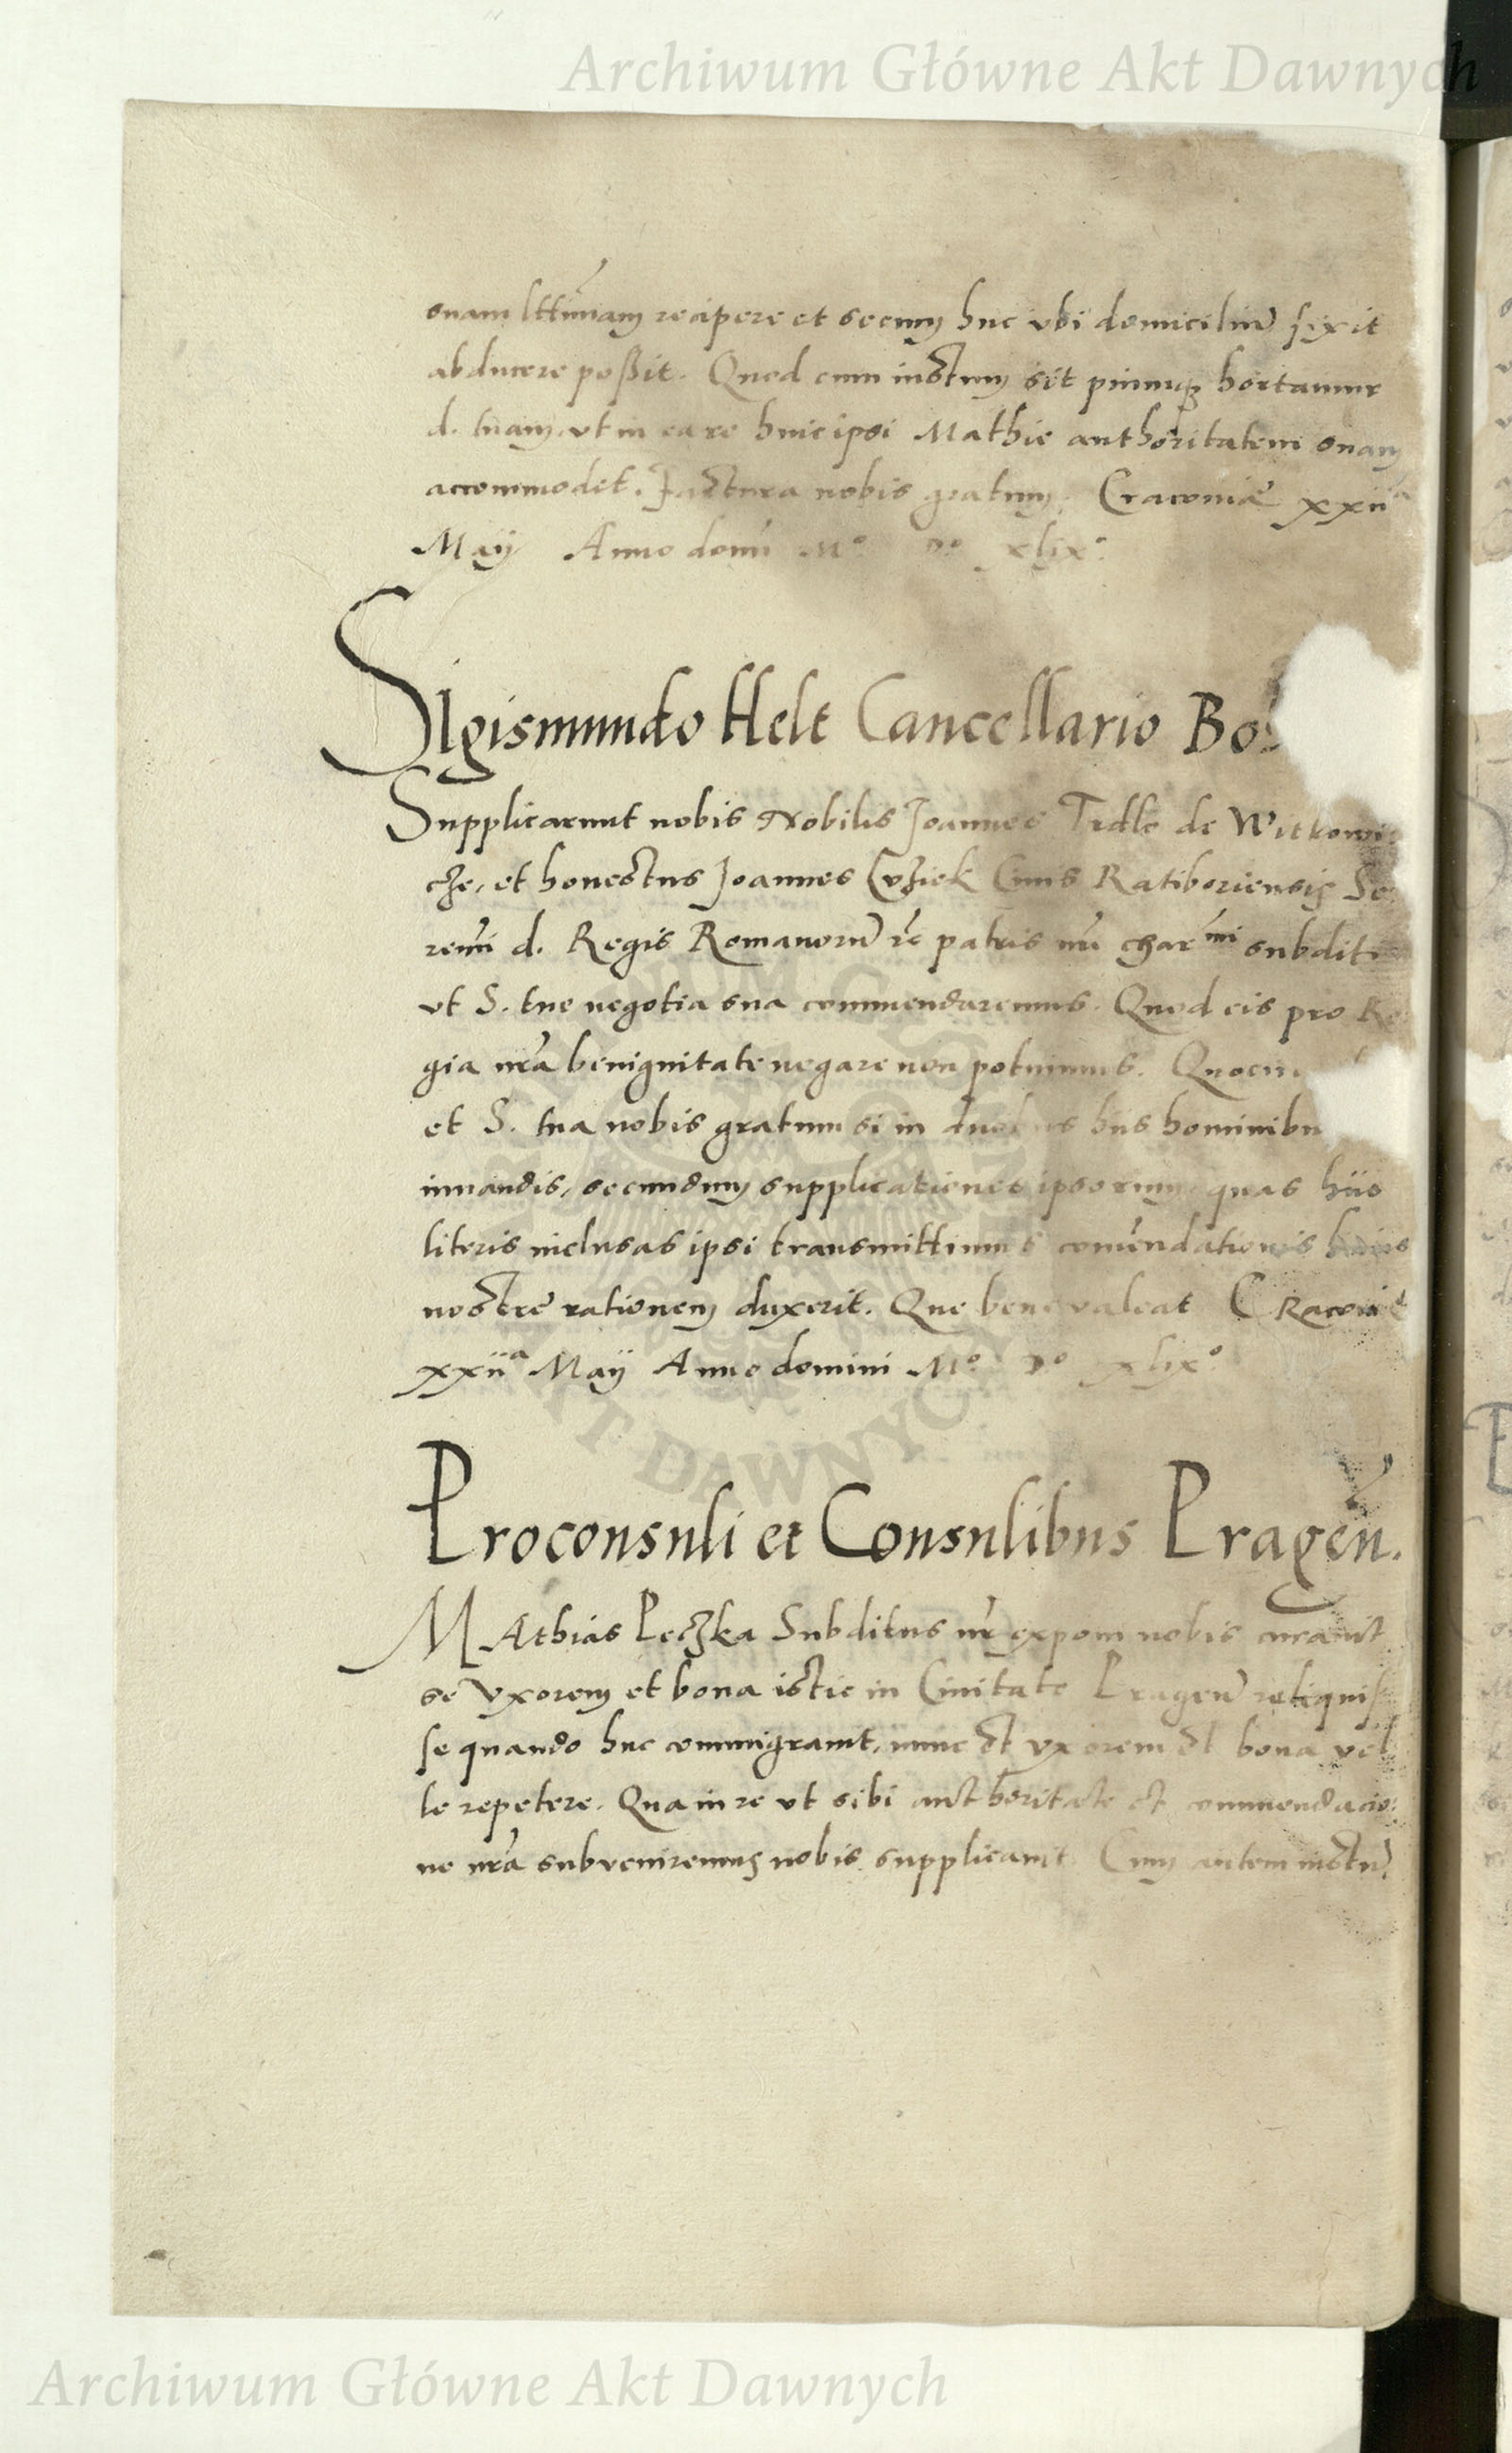 Archiwum Główne Akt Dawnych
suam lttimam recipere et secum huc vbi domiciliũ fixit
abducere poßit. Quod cum iustum sit piumq₃ hortamur
d. tuam, vt in ea re huic ipsi Mathie authoritatem suam
accommodet. Factura nobis gratum. Cracoviæ xxiiª
Maÿ Anno domi Mº Dº xlixº
Sigismundo Helt Cancellario Bo
Supplicarunt nobis Nobilis Joannes Trdlo de Witkowi
cze, et honestus Joannes Civis Ratiboriensis Se
remi d. Regis Romanorũ rē patris nri charmi subdit
vt S. tue negotia sua commendaremus. Quod eis pro Re
gia nrã benignitate negare non potuimus.
et S. tua nobis gratum si in duobus hiis hominibu
iuuandis, secundum supplicationes ipsorum, quas hiis
literis inclusas ipsi transmittimus comẽndationis huius
nostrę rationem duxerit. Que bene valeat Cracovię
xxiiª Maÿ Anno domini Mº Dº xlixº
Proconsuli et Consulibus Pragen̄.
MAthias Peczka Subditus nr̃ exponi nobis curauit
se Vxorem et bona istic in Ciuitate Pragen̄ reliquis
se quando huc commigrauit, nunc et vxorem et bona vel
le repetere. Qua in re vt sibi authoritate et commendacio
ne nrã subveniremus nobis supplicauit. Cum autem iustũ
AKT DAWNYCH
Archiwum Główne Akt Dawnych